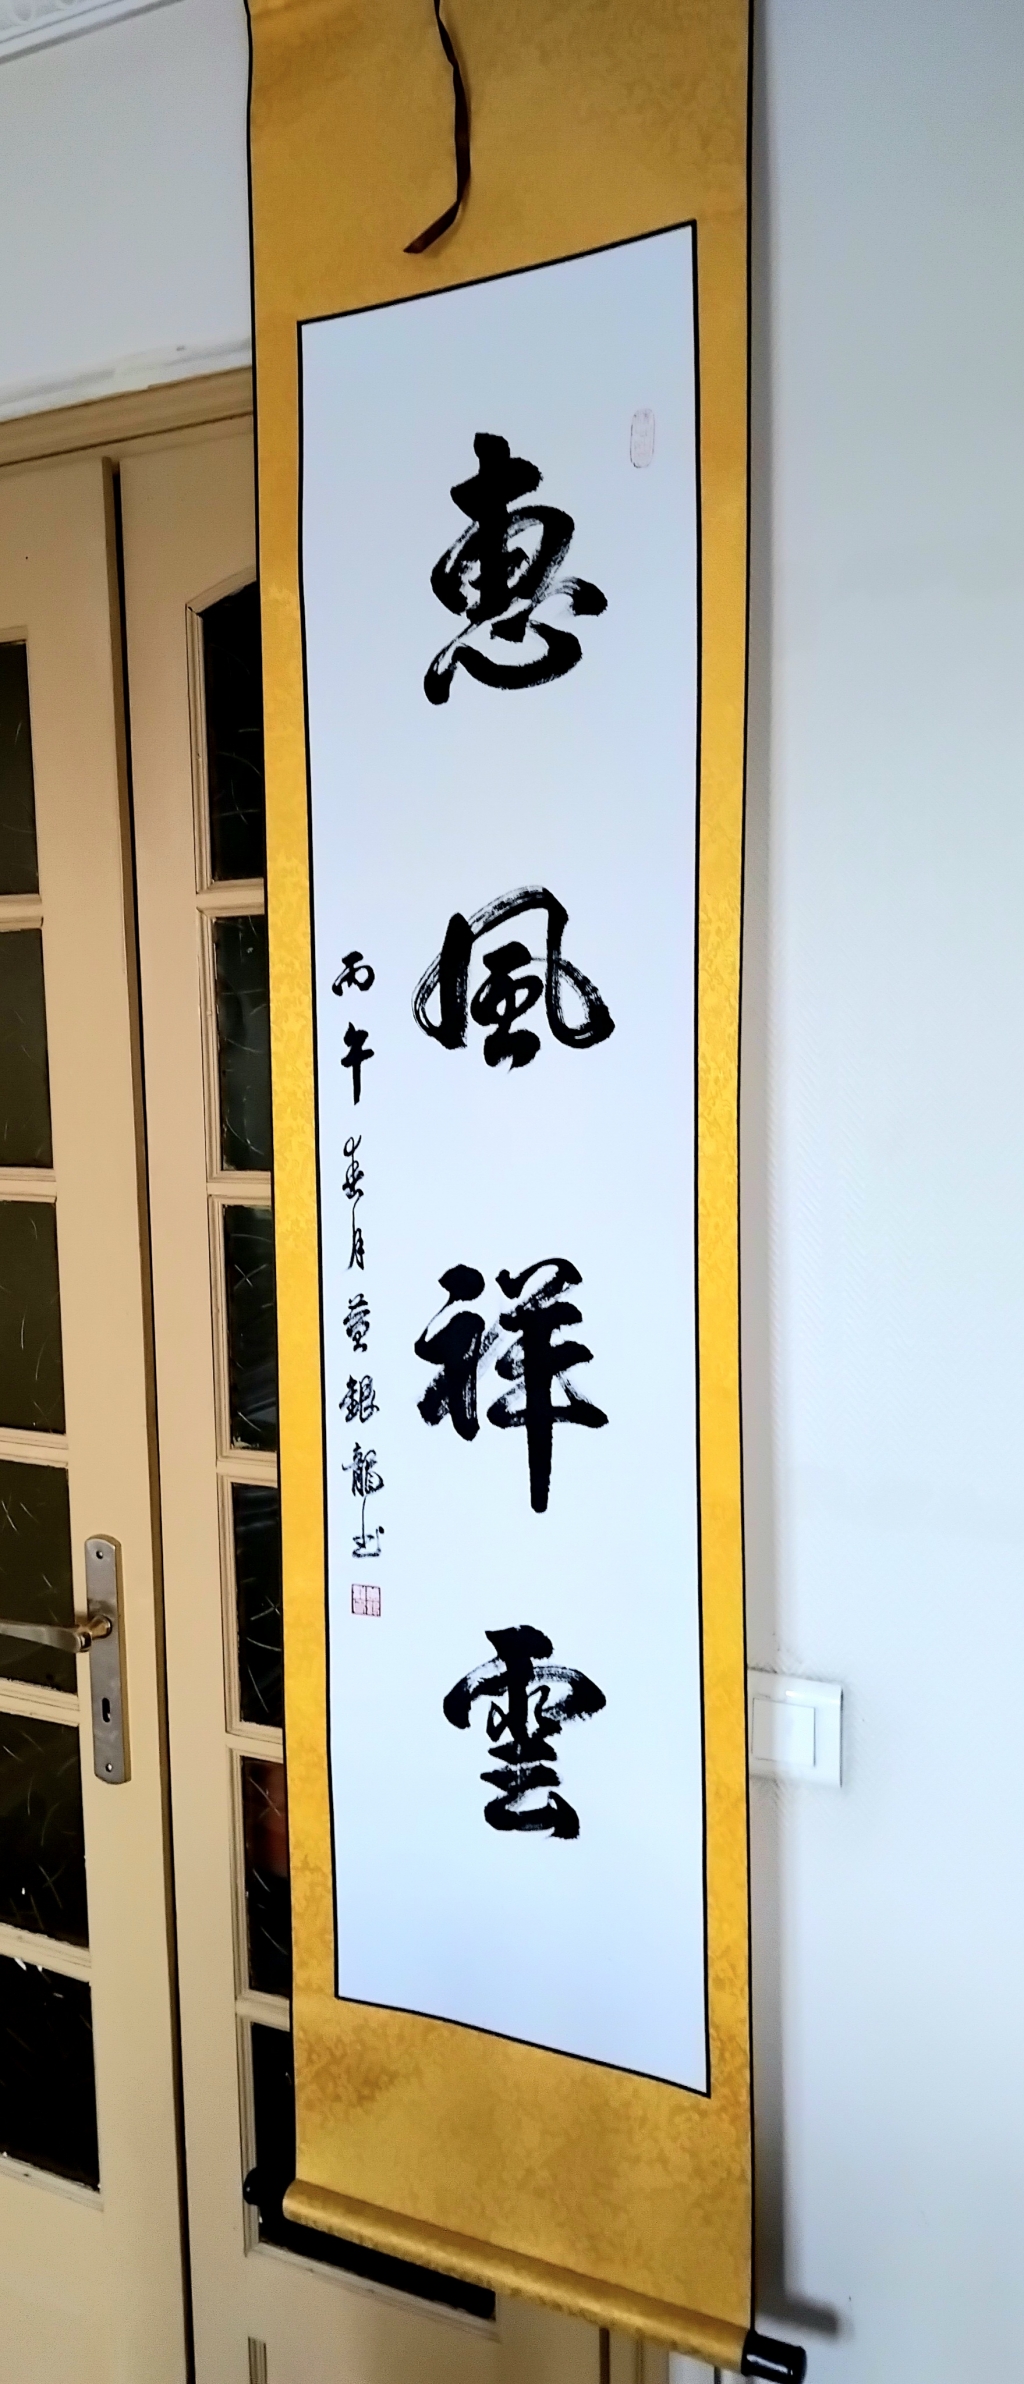 惠風祥雲
丙午春月黄銀龍书